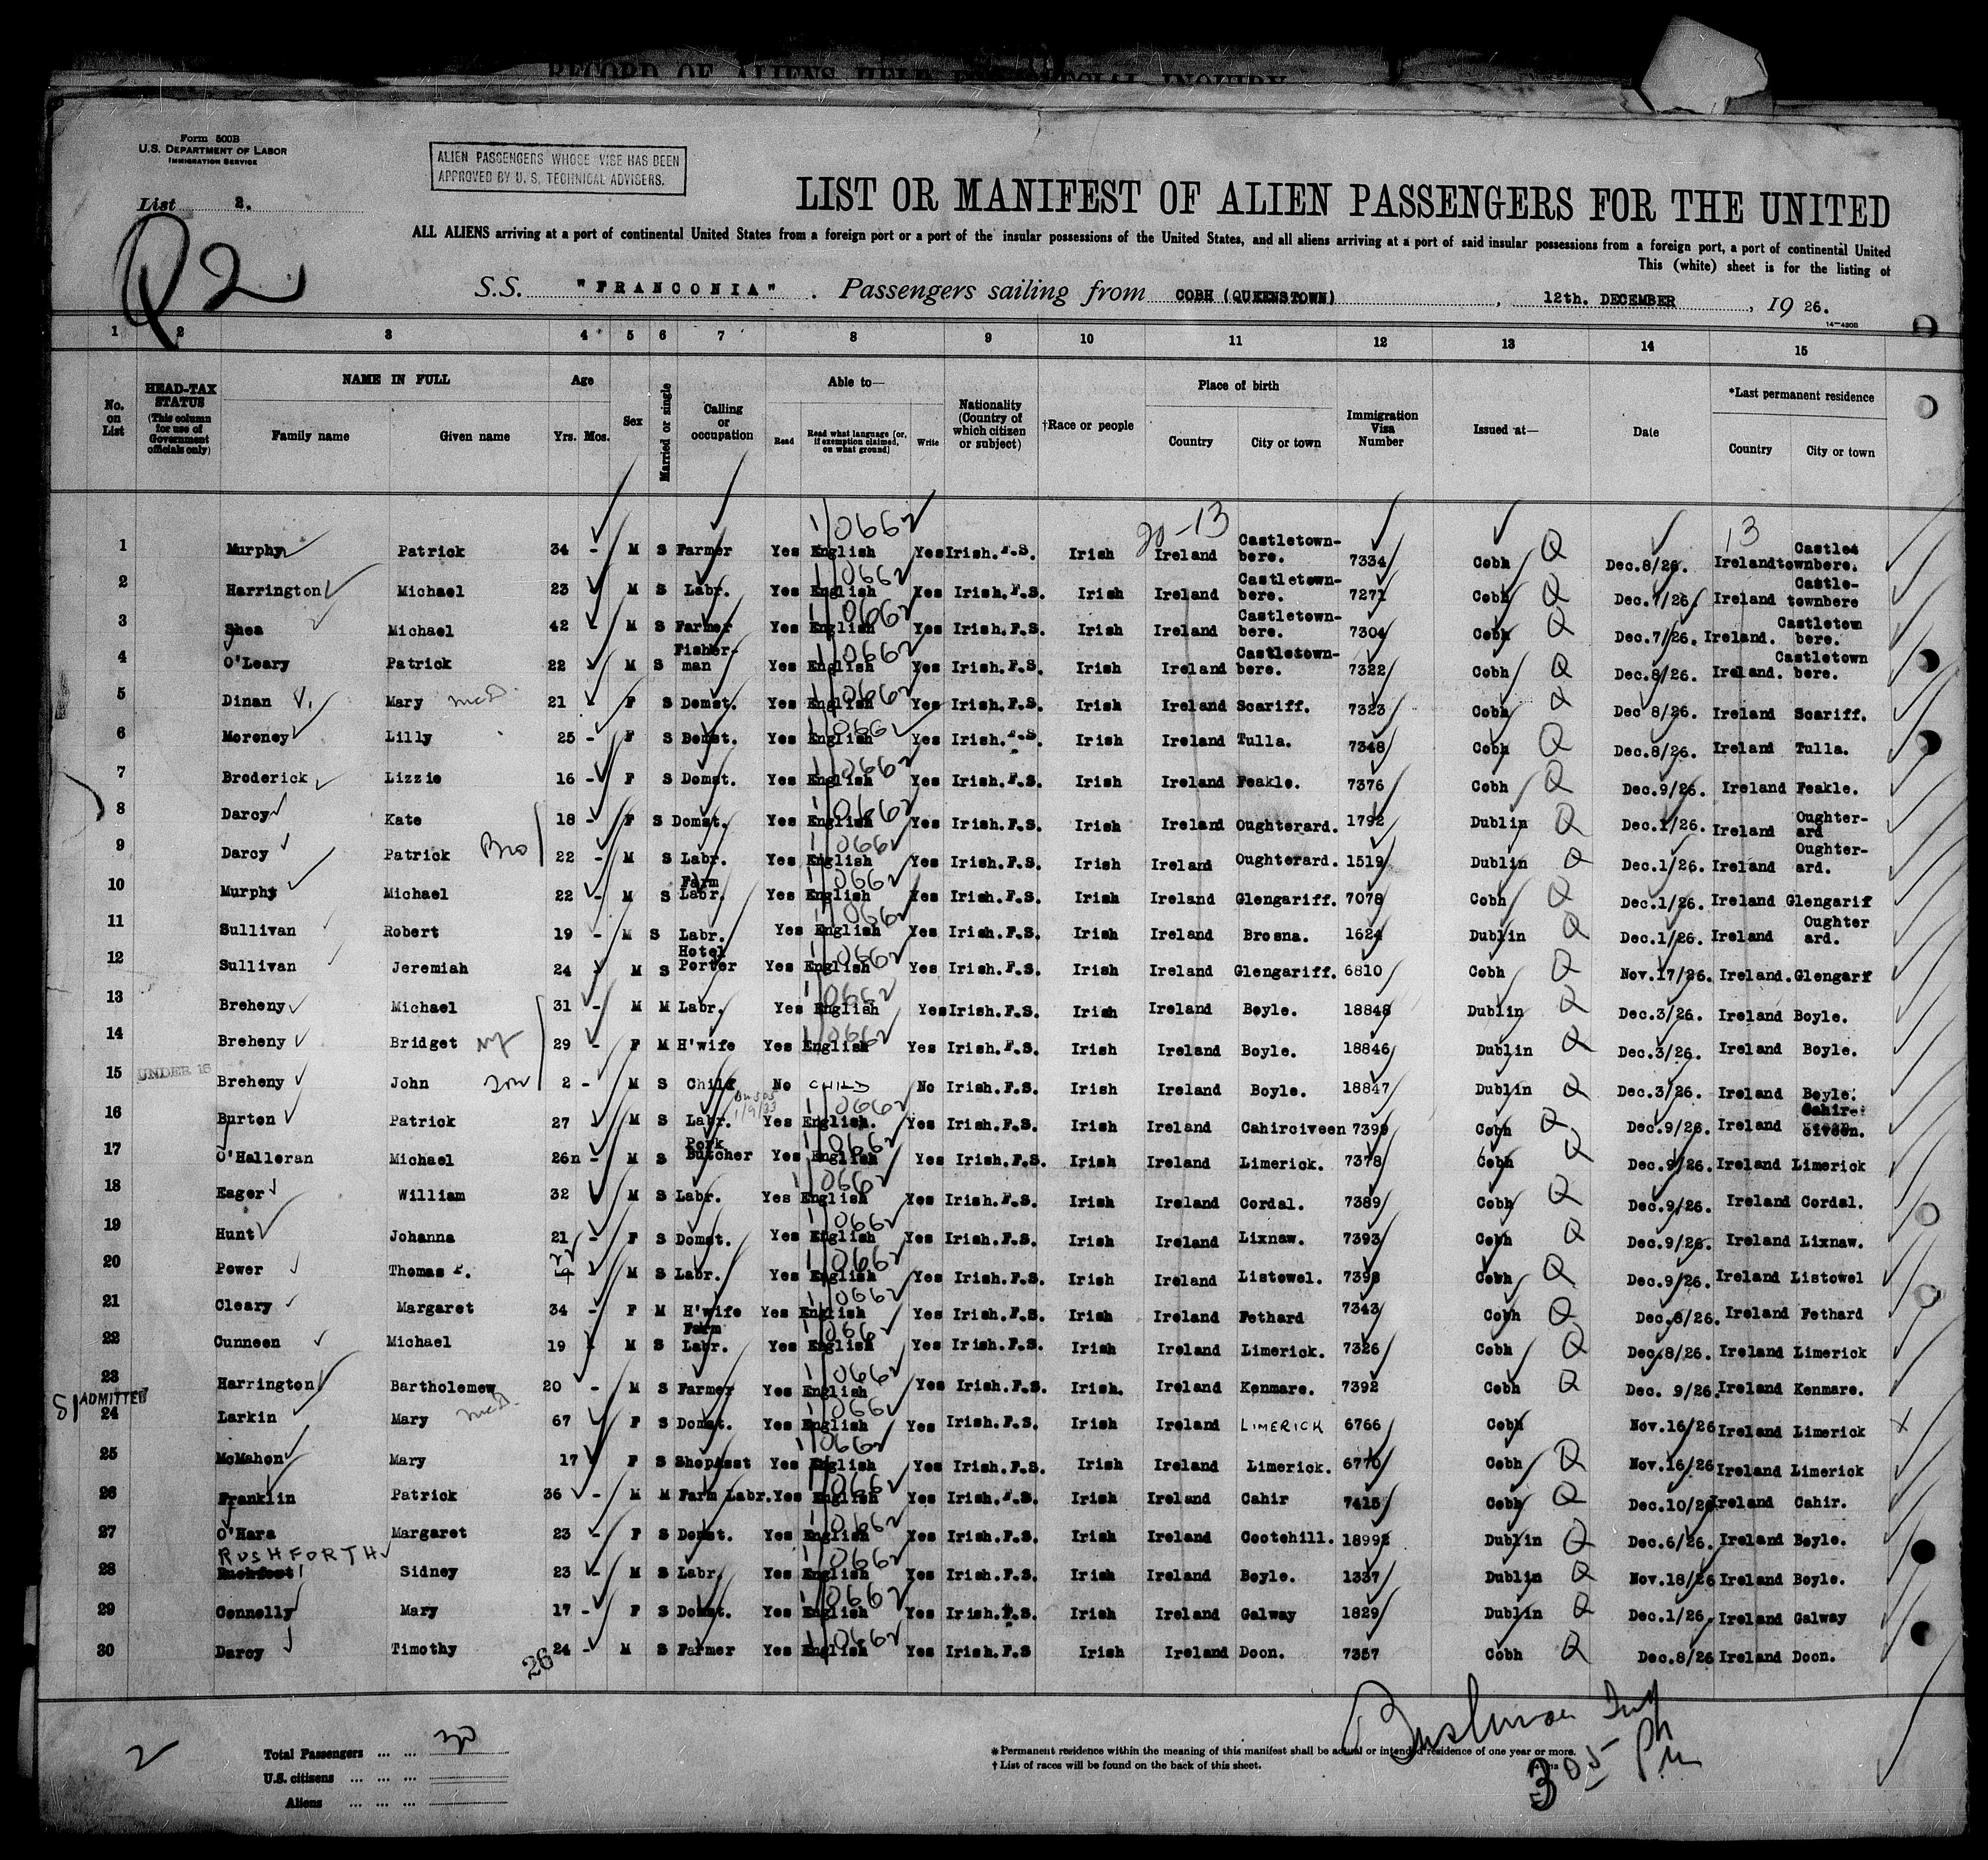 RECORD OF ALIENS HELD FOR SPECIAL INQUIRY
Form 500B
U.S. DEPARTMENT OF LABOR
IMMIGRATION SERVICE
ALIEN PASSENGERS WHOSE VISE HAS BEEN
APPROVED BY U. S. TECHNICAL ADVISERS.
List 2.
Q2
LIST OR MANIFEST OF ALIEN PASSENGERS FOR THE UNITED
ALL ALIENS arriving at a port of continental United States from a foreign port or a port of the insular possessions of the United States, and all aliens arriving at a port of said insular possessions from a foreign port, a port of continental United
This (white) sheet is for the listing of
S.S. "FRANCONIA" . Passengers sailing from COBH (QUEENSTOWN) , 12th. DECEMBER , 19 26.
14—430B
1 2 3 4 5 6 7 8 9 10 11 12 13 14 15
No. on List
HEAD-TAX STATUS (This column for use of Government officials only)
NAME IN FULL Family name Given name
Age Yrs. Mos.
Sex
Married or single
Calling or occupation
Able to— Read Read what language (or, if exemption claimed, on what ground) Write
Nationality (Country of which citizen or subject)
†Race or people
Place of birth Country City or town
Immigration Visa Number
Issued at—
Date
*Last permanent residence Country City or town
20-13 13
1 Murphy Patrick 34 - M S Farmer Yes English Yes Irish.F.S. Irish Ireland Castletown-bere. 7334 Cobh Q Dec.8/26. Ireland Castletownbere.
2 Harrington Michael 23 M S Labr. Yes English Yes Irish.F.S. Irish Ireland Castletown-bere. 7271 Cobh Q Dec.7/26. Ireland Castle-townbere
3 Shea Michael 42 - M S Farmer Yes English Yes Irish.F.S. Irish Ireland Castletown-bere. 7304 Cobh Q Dec.7/26. Ireland. Castletown bere.
4 O'Leary Patrick 22 M S Fisher-man Yes English Yes Irish.F.S. Irish Ireland Castletown-bere. 7322 Cobh Q Dec.8/26. Ireland. Castletown bere.
5 Dinan Mary 21 - F S Domst. Yes English Yes Irish.F.S. Irish Ireland Scariff. 7323 Cobh Q Dec 8/26. Ireland Scariff.
6 Moroney Lilly 25 - F S Domst. Yes English Yes Irish.F.S. Irish Ireland Tulla. 7348 Cobh Q Dec.8/26. Ireland Tulla.
7 Broderick Lizzie 16 - F S Domst. Yes English Yes Irish.F.S. Irish Ireland Feakle. 7376 Cobh Q Dec.9/26. Ireland Feakle.
8 Darcy Kate 18 - F S Domst. Yes English Yes Irish.F.S. Irish Ireland Oughterard. 1792 Dublin Q Dec.1/26. Ireland Oughter-ard
9 Darcy Patrick Bro 22 - M S Labr. Yes English Yes Irish.F.S. Irish Ireland Oughterard. 1519 Dublin Q Dec.1/26. Ireland Oughter-ard.
10 Murphy Michael 22 - M S Farm Labr. Yes English Yes Irish.F.S. Irish Ireland Glengariff. 7078 Cobh Q Dec.1/26. Ireland Glengarif
11 Sullivan Robert 19 - M S Labr. Yes English Yes Irish.F.S. Irish Ireland Brosna. 1624 Dublin Q Dec.1/26. Ireland Oughter ard.
12 Sullivan Jeremiah 24 M S Hotel Porter Yes English Yes Irish.F.S. Irish Ireland Glengariff. 6810 Cobh Q Nov.17/26. Ireland. Glengarf
13 Breheny Michael 31 - M M Labr. Yes English Yes Irish.F.S. Irish Ireland Boyle. 18848 Dublin Q Dec.3/26. Ireland Boyle.
14 Breheny Bridget wf 29 - F M H'wife Yes English Yes Irish.F.S. Irish Ireland Boyle. 18846 Dublin Q Dec.3/26. Ireland Boyle.
15 UNDER 16 Breheny John son 2 - M S Child No CHILD No Irish.F.S. Irish Ireland Boyle. 18847 Dublin Q Dec.3/26. Ireland Boyle.
16 Burton Patrick 27 M S Labr. Yes English. Yes Irish.F.S. Irish Ireland Cahirciveen 7395 Cobh Q Dec.9/26. Ireland Cahir-civeen.
17 O'Halloran Michael 26n - M S Pork Butcher Yes English Yes Irish.F.S. Irish Ireland Limerick. 7378 Cobh Q Dec.9/26. Ireland Limerick
18 Eager William 32 M S Labr. Yes English Yes Irish.F.S. Irish Ireland Cordal. 7389 Cobh Q Dec.9/26. Ireland Cordal.
19 Hunt Johanna 21 - F S Domst. Yes English Yes Irish.F.S. Irish Ireland Lixnaw. 7393 Cobh Q Dec.9/26. Ireland Lixnaw.
20 Power Thomas P. 22 M S Labr. Yes English Yes Irish.F.S. Irish Ireland Listowel. 7398 Cobh Q Dec.9/26. Ireland Listowel
21 Cleary Margaret 34 - F M H'wife Yes English Yes Irish.F.S. Irish Ireland Fethard 7343 Cobh Q Dec.8/26. Ireland Fethard
22 Cunneen Michael 19 M S Farm Labr. Yes English Yes Irish.F.S. Irish Ireland Limerick. 7326 Cobh Q Dec.8/26. Ireland Limerick
23 Harrington Bartholemew 20 - M S Farmer Yes English Yes Irish.F.S. Irish. Ireland Kenmare. 7392 Cobh Q Dec. 9/26. Ireland Kenmare.
SI ADMITTED
24 Larkin Mary 67 - F S Domst. Yes English Yes Irish.F.S. Irish Ireland LIMERICK 6766 Cobh Nov.16/26 Ireland Limerick X
25 McMahon Mary 17 F S ShopAsst Yes English Yes Irish.F.S. Irish Ireland Limerick. 6770 Cobh Q Nov.16/26 Ireland Limerick
26 Franklin Patrick 36 - M M Farm Labr. Yes English Yes Irish.F.S. Irish Ireland Cahir 7415 Cobh Q Dec.10/26 Ireland Cahir.
27 O'Hara Margaret 23 - F S Domst. Yes English Yes Irish.F.S. Irish Ireland Cootehill. 18992 Dublin Q Dec.6/26. Ireland Boyle.
RUSHFORTH
28 Sidney 23 - M S Labr. Yes English Yes Irish.F.S. Irish Ireland Boyle. 1337 Dublin Q Nov.18/26 Ireland Boyle.
29 Connolly Mary 17 - F S Domst. Yes English Yes Irish.F.S. Irish Ireland Galway 1829 Dublin Q Dec.1/26. Ireland Galway
30 Darcy Timothy 26 24 - M S Farmer Yes English Yes Irish.F.S Irish Ireland Doon. 7357 Cobh Q Dec.8/26 Ireland Doon.
2
Total Passengers ... ... 30
U.S. citizens ... ... ...
Aliens ... ... ...
*Permanent residence within the meaning of this manifest shall be actual or intended residence of one year or more.
† List of races will be found on the back of this sheet.
305 PM